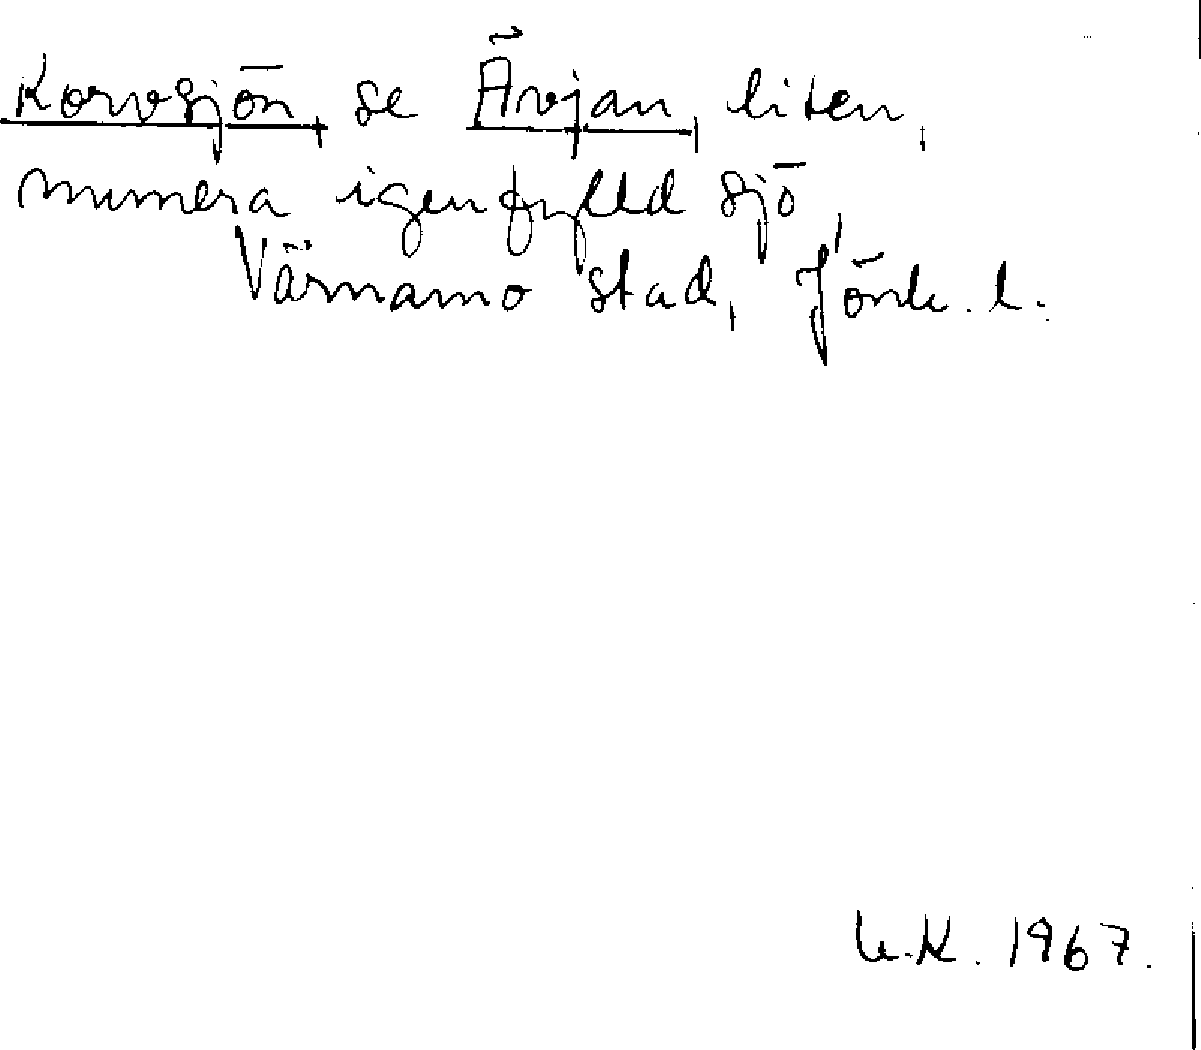 Korvsjön, se Ärvjan, liten,
numera igenfylld sjö,
Värnamo stad, Jönk. l.
U.K. 1967.